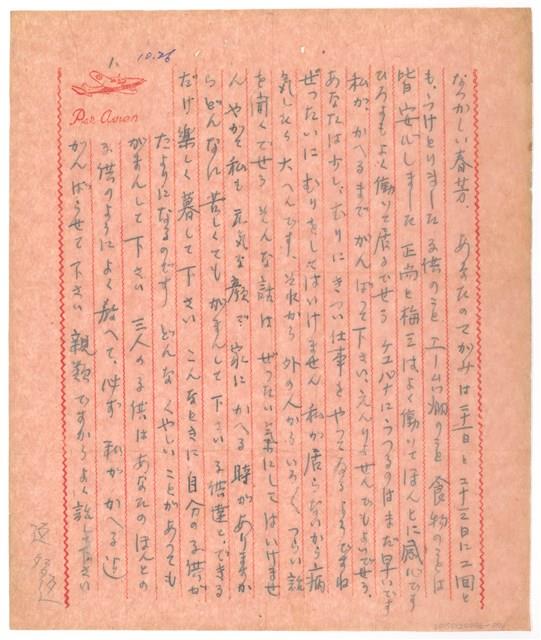 1. 10.26
Par Avion
なつかしい春芳、 あなたのてがみは二十一日と二十三日に二回と
も、うけとりました 子供のこと、エーム畑のこと 食物のことは
皆 安心しました 正尚と梅三はよく働いてほんとに感心です
ひろ子もよく働いて居るでせう ケエパナにうつるのはまだ早いです
私が、かへるまで がんばって下さい、えんりょせんでもよいでせう、
あなたは少し、むりに きつい仕事を やってゐる ようですね
ぜったいに むりをしてはいけません 私が居らないから病
気したら 大へんです、それから 外の人から いろ〱、つらい話
を聞くでせう そんな話は ぜったい気にしてはいけませ
ん やがて私も元気な顔で、家に かへる 時がありますか
ら どんなに 苦しくても がまんして下さい 子供達と、できる
だけ楽しく暮して下さい こんなときに 自分の子供が
たよりになるのです どんな くやしいことがあっても
がまんして下さい 三人の子供はあなたの ほんとの
子供のように よく教へて、必ず 私が かへる迄
がんばらせて下さい 親類ですからよく話して下さい